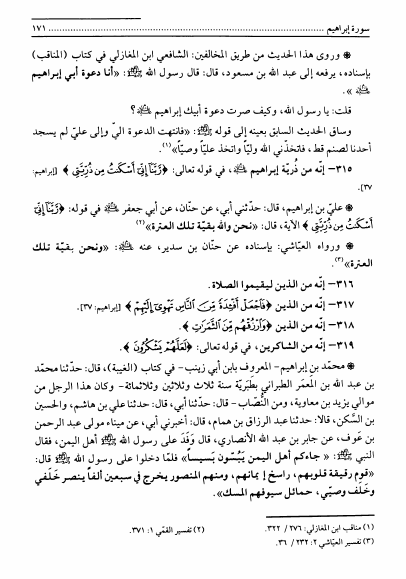 سورة إبراهيم ........ ١٧١
❋ وروى هذا الحديث من طريق المخالفين: الشافعي ابن المغازلي في كتاب (المناقب)
بإسناده، يرفعه إلى عبد الله بن مسعود، قال: قال رسول الله ﷺ: «أنا دعوة أبي إبراهيم
».
قلت: يا رسول الله، وكيف صرت دعوة أبيك إبراهيم ؟
وساق الحديث السابق بعينه إلى قوله ﷺ: «فانتهت الدعوة اليّ وإلى عليّ لم يسجد
أحدنا لصنم قط، فاتخذني الله وليّاً واتخذ عليّاً وصيّاً»(١).
٣١٥- إنّه من ذُريّة إبراهيم ، في قوله تعالى: ﴿رَبَّنَآ إِنِّىٓ أَسْكَنتُ مِن ذُرِّيَّتِى﴾ [إبراهيم:
٣٧].
❋ عليّ بن إبراهيم، قال: حدّثني أبي، عن حنّان، عن أبي جعفر في قوله: ﴿رَبَّنَآ إِنِّىٓ
أَسْكَنتُ مِن ذُرِّيَّتِى﴾ الآية، قال: «نحن والله بقيّة تلك العترة»(٢)
❋ ورواه العيّاشي: بإسناده عن حنّان بن سدير، عنه : «ونحن بقيّة تلك
العترة»(٣).
٣١٦- إنّه من الذين ليقيموا الصلاة.
٣١٧- إنّه من الذين ﴿فَٱجْعَلْ أَفْـِٔدَةً مِّنَ ٱلنَّاسِ تَهْوِىٓ إِلَيْهِمْ﴾ [إبراهيم: ٣٧].
٣١٨- إنّه من الذين ﴿وَٱرْزُقْهُم مِّنَ ٱلثَّمَرَٰتِ﴾.
٣١٩- إنّه من الشاكرين، في قوله تعالى: ﴿لَعَلَّهُمْ يَشْكُرُونَ﴾.
❋ محمّد بن إبراهيم- المعروف بابن أبي زينب- في كتاب (الغيبة)، قال: حدّثنا محمّد
بن عبد الله بن المعمَر الطبراني بطبريّة سنة ثلاث وثلاثين وثلاثمائة- وكان هذا الرجل من
موالي يزيد بن معاوية، ومن النُّصّاب- قال: حدّثنا أبي، قال: حدثنا علي بن هاشم، والحسين
بن السَّكَن، قالا: حدثنا عبد الرزاق بن همام، قال: أخبرني أبي، عن ميناء مولى عبد الرحمن
بن عَوف، عن جابر بن عبد الله الأنصاري، قال وَفَدَ على رسول الله ﷺ أهل اليمن، فقال
النبي ﷺ: « جاءكم أهل اليمن يَبُسّون بَسيساً» فلمّا دخلوا على رسول الله ﷺ قال:
«قوم رقيقة قلوبهم، راسخ إيمانهم، ومنهم المنصور يخرج في سبعين ألفاً ينصر خَلَفي
وخَلَف وصيّي، حمائل سيوفهم المسك».
(١) مناقب ابن المغازلي: ٢٧٦/ ٣٢٢. (٢) تفسير القمّي ١: ٣٧١.
(٣) تفسير العيّاشي ٢: ٢٣٢/ ٣٦.